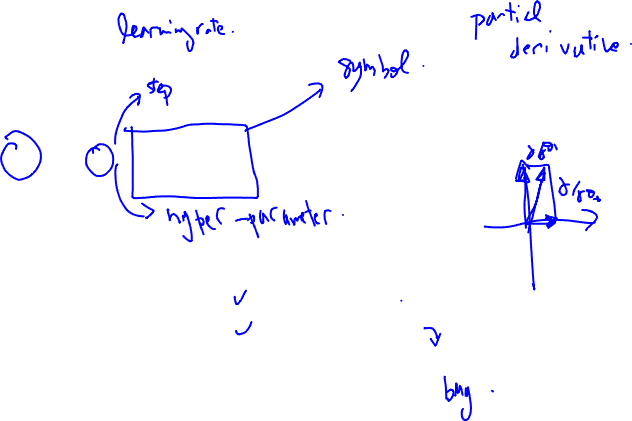 learning rate.
partial
derivative.
symbol.
step
hyper-parameter.
bug.